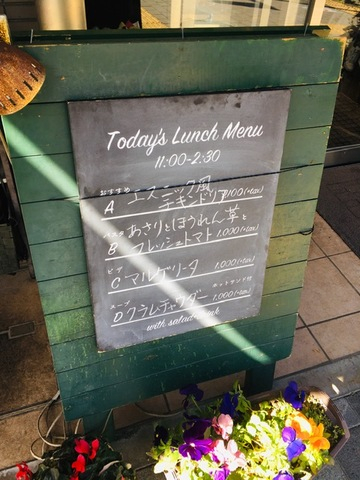 Today's Lunch Menu
11:00-2:30
おすすめ
A エスニック風
チキンドリア 1,100(+tax)
パスタ
B あさりとほうれん草と
フレッシュトマト 1,000(+tax)
ピザ
C マルゲリータ 1,000(+tax)
スープ ホットサンド付
D クラムチャウダー 1,000(+tax)
with salad drink